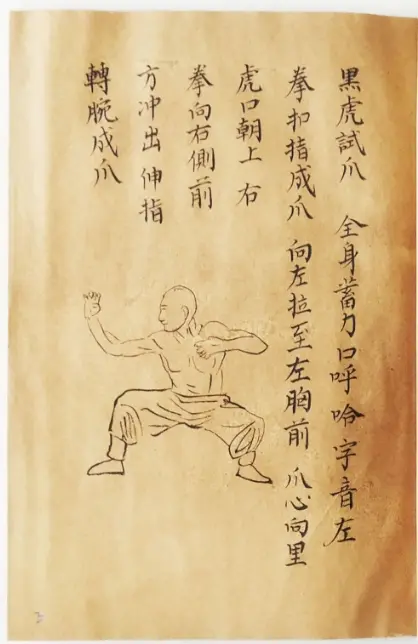 黑虎試爪 全身蓄力口呼哈字音左
拳扣指成爪 向左拉至左胸前 爪心向里
虎口朝上 右
拳向右側前
方冲出 伸指
轉腕成爪